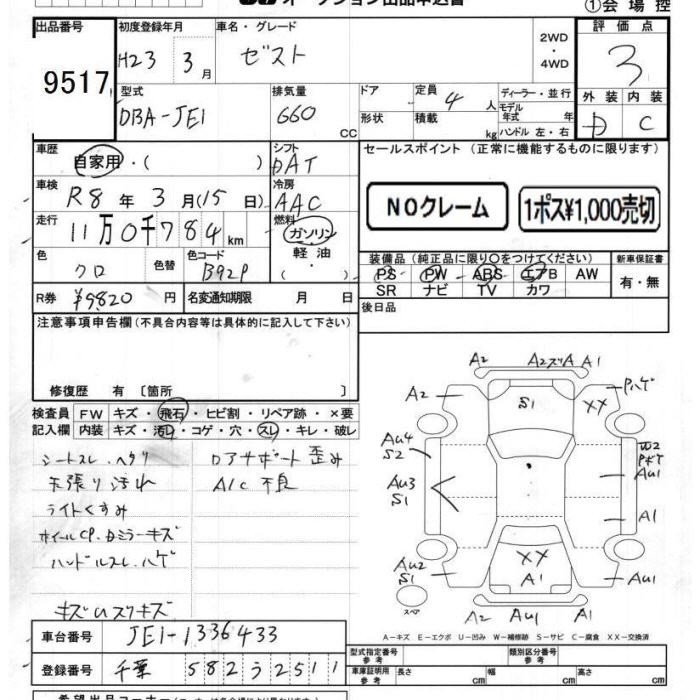 オークション出品申込書
①会場控
出品番号
9517
初度登録年月
H23 3月
車名・グレード
ゼスト
2WD
・
4WD
評価点
3
外装 内装
D C
型式
DBA-JE1
排気量
660 cc
ドア
形状
定員
4 人
積載
kg
ディーラー・並行
モデル年式 年
ハンドル 左・右
車歴
自家用・( )
シフト
DAT
セールスポイント (正常に機能するものに限ります)
NOクレーム
1ポス¥1,000売切
車検
R8年 3月(15日)
冷房
AAC
走行
11万0千784km
燃料
ガソリン
軽油
・( )
色
クロ
色替
色コード
B92P
装備品(純正品に限り○をつけてください)
新車保証書
PS PW ABS エアB AW
SR ナビ TV カワ
有・無
R券 ¥9820円
名変通知期限 月 日
後日品
注意事項申告欄(不具合内容等は具体的に記入して下さい)
修復歴 有〔箇所 〕
検査員 FW キズ・飛石・ヒビ割・リペア跡・×要
記入欄 内装 キズ・汚レ・コゲ・穴・スレ・キレ・破レ
シートスレ.ヘタリ
天張り汚れ
ライトくすみ
ホイールCP.ドミラーキズ
ハンドルスレ.ハゲ
キズUスリキズ
ロアサポート歪み
A/C 不良
A2 A2ズリA A1
A2 S1 XX Pハゲ
Au4
S2
W2
Pボケ
Au1
Au3
S1
A1
Au2
S1
XX
A1
Au1
スペア
A2 Au1 A1
A-キズ E-エクボ U-凹み W-補修跡 S-サビ C-腐食 XX-交換済
車台番号 JE1-1336433
登録番号 千葉 582う2511
型式指定番号
参考
類別区分番号
参考
車庫証明用
参考
長さ cm 幅 cm 高さ cm
希望出品コーナー